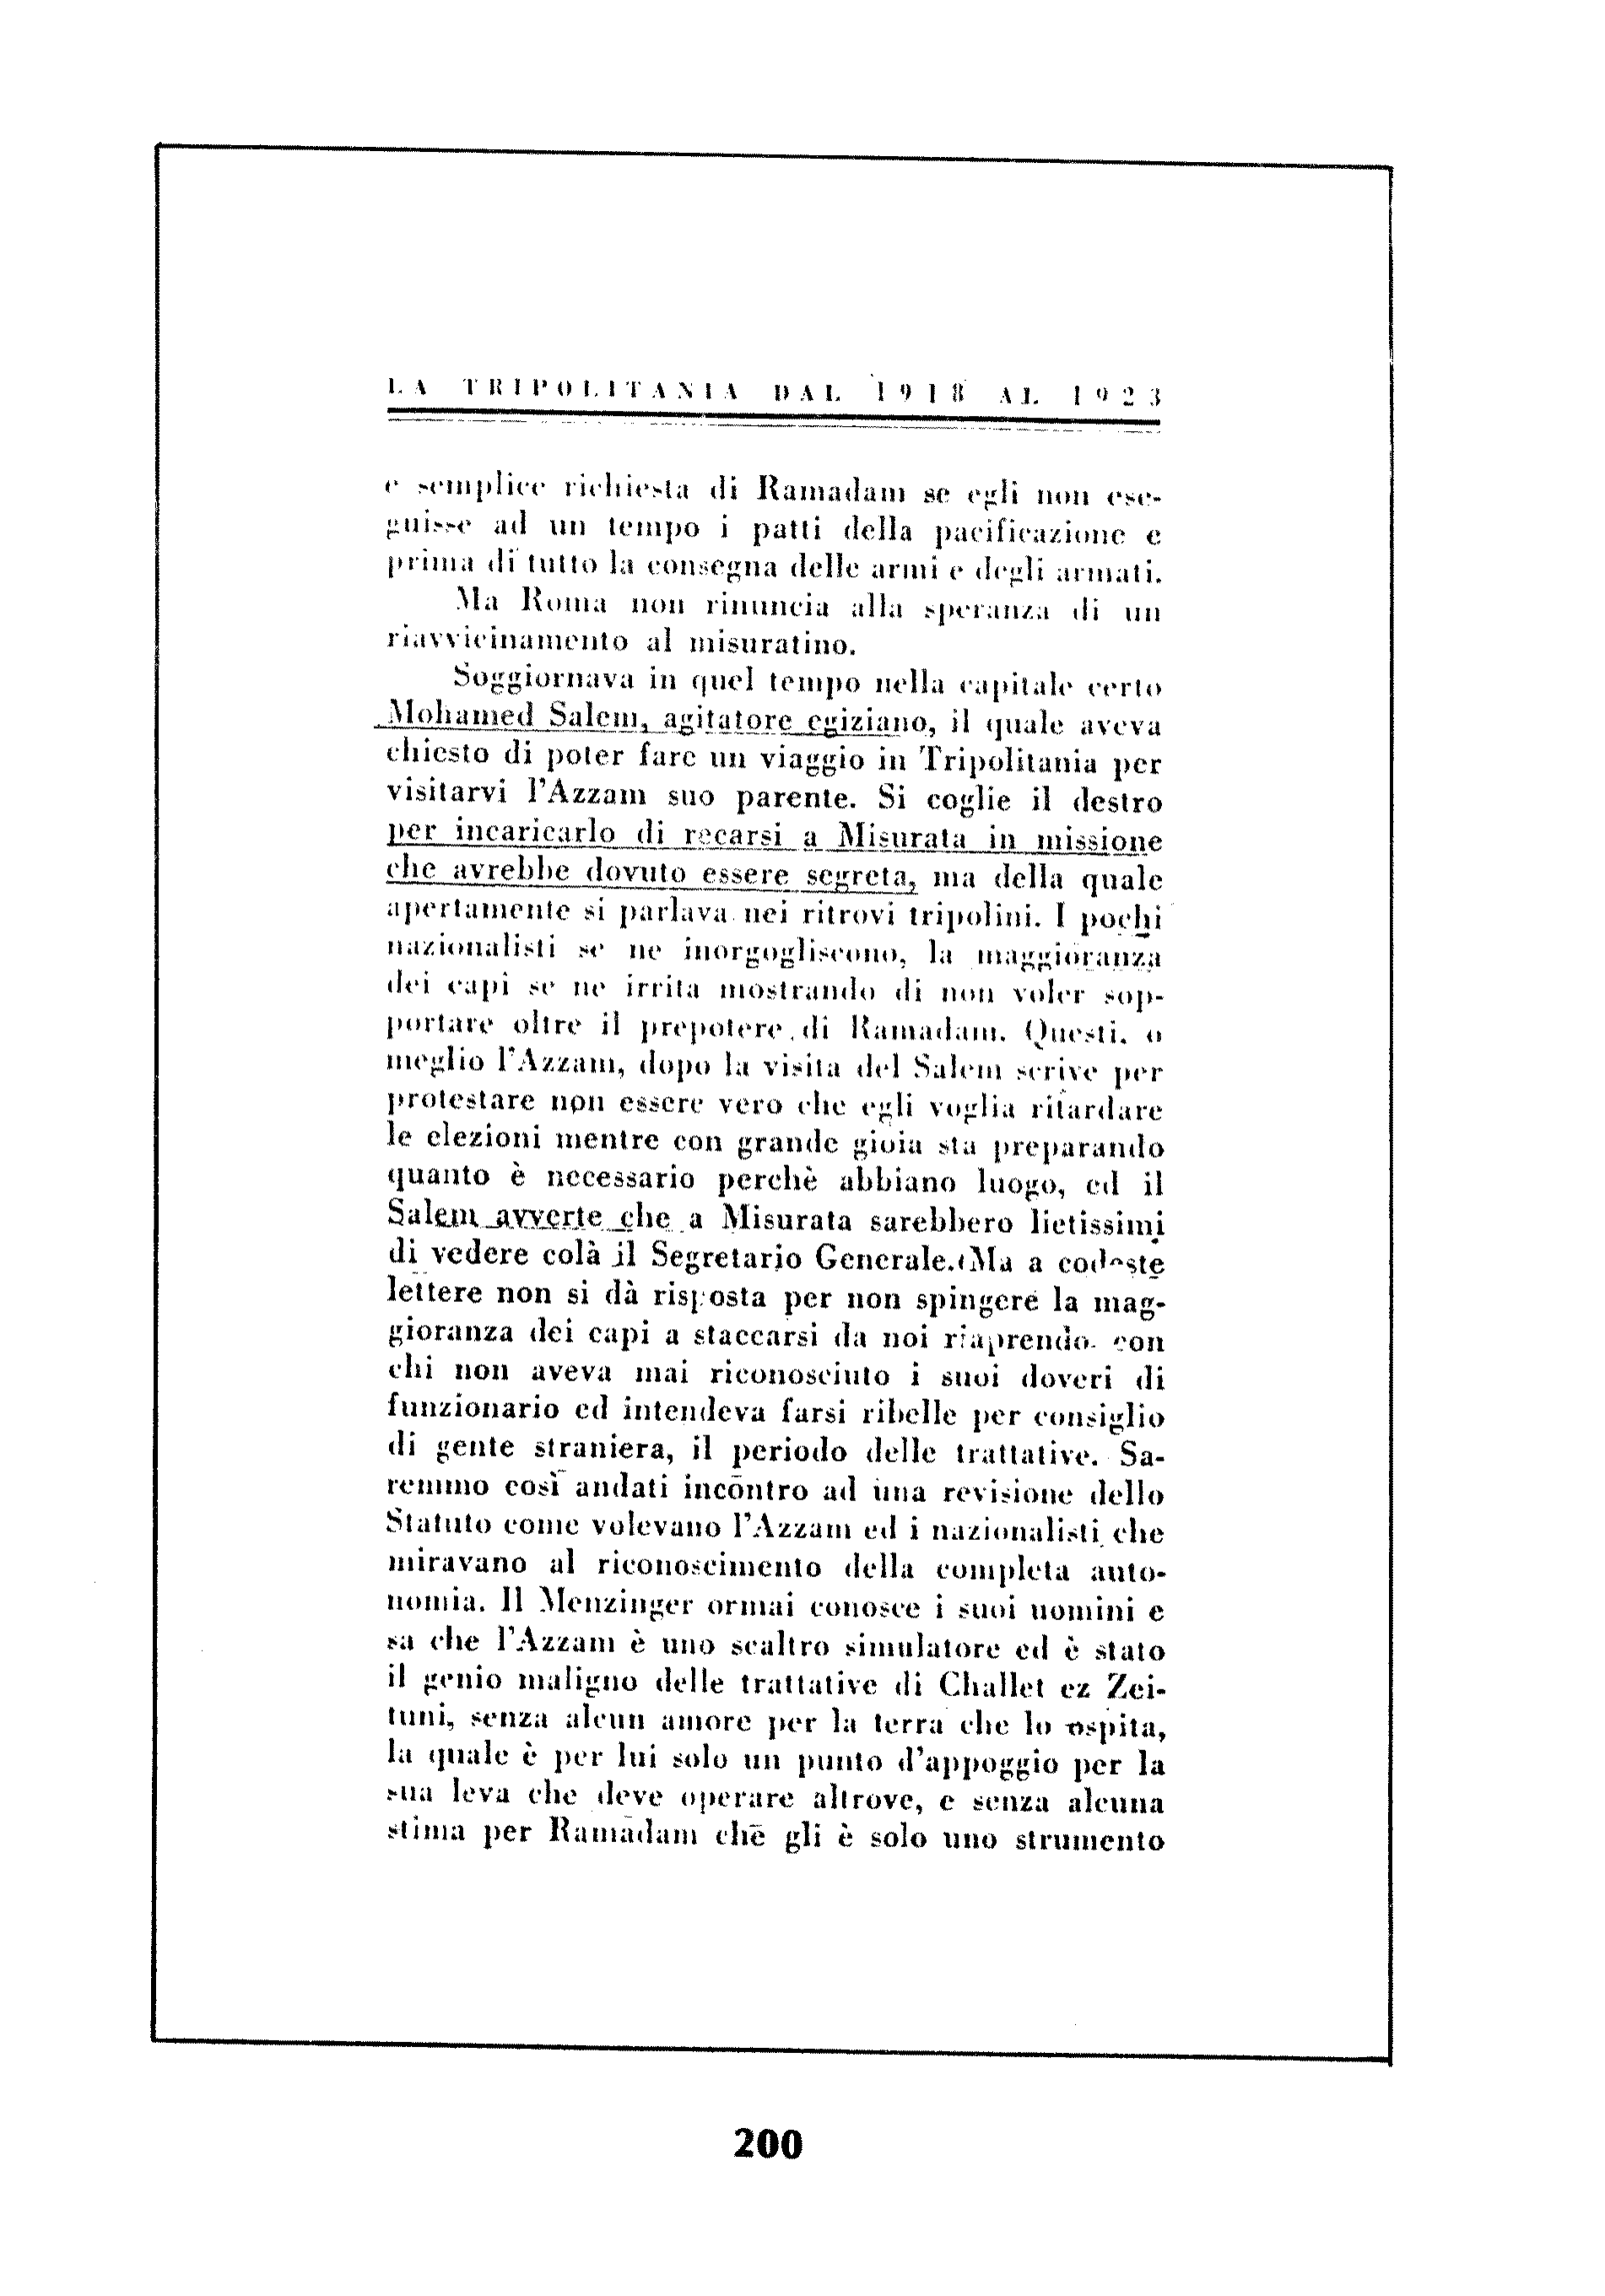 LA TRIPOLITANIA DAL 1918 AL 1923
e semplice richiesta di Ramadam se egli non ese-
guisse ad un tempo i patti della pacificazione e
prima di tutto la consegna delle armi e degli armati.
Ma Roma non rinuncia alla speranza di un
riavvicinamento al misuratino.
Soggiornava in quel tempo nella capitale certo
Mohamed Salem, agitatore egiziano, il quale aveva
chiesto di poter fare un viaggio in Tripolitania per
visitarvi l'Azzam suo parente. Si coglie il destro
per incaricarlo di recarsi a Misurata in missione
che avrebbe dovuto essere segreta, ma della quale
apertamente si parlava nei ritrovi tripolini. I pochi
nazionalisti se ne inorgogliscono, la maggioranza
dei capi se ne irrita mostrando di non voler sop-
portare oltre il prepotere di Ramadam. Questi. o
meglio l'Azzam, dopo la visita del Salem scrive per
protestare non essere vero che egli voglia ritardare
le elezioni mentre con grande gioia sta preparando
quanto è necessario perchè abbiano luogo, ed il
Salem avverte che a Misurata sarebbero lietissimi
di vedere colà il Segretario Generale. Ma a codeste
lettere non si dà risposta per non spingere la mag-
gioranza dei capi a staccarsi da noi riaprendo. con
chi non aveva mai riconosciuto i suoi doveri di
funzionario ed intendeva farsi ribelle per consiglio
di gente straniera, il periodo delle trattative. Sa-
remmo così andati incontro ad una revisione dello
Statuto come volevano l'Azzam ed i nazionalisti che
miravano al riconoscimento della completa auto-
nomia. Il Menzinger ormai conosce i suoi uomini e
sa che l'Azzam è uno scaltro simulatore ed è stato
il genio maligno delle trattative di Challet ez Zei-
tuni, senza alcun amore per la terra che lo ospita,
la quale è per lui solo un punto d'appoggio per la
sua leva che deve operare altrove, e senza alcuna
stima per Ramadam che gli è solo uno strumento
200